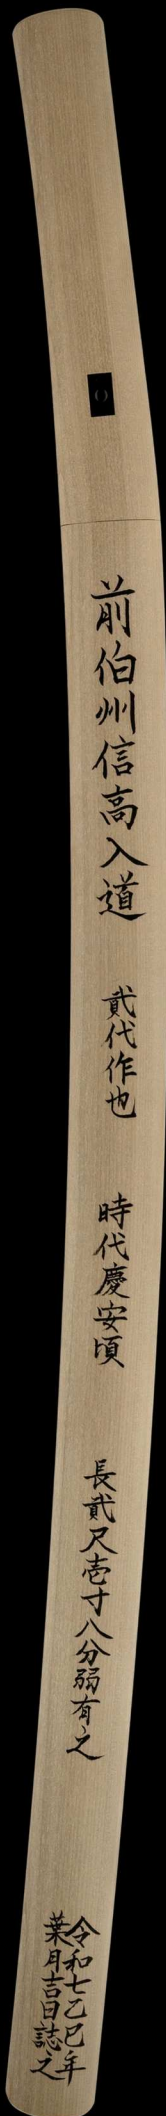 前伯州信高入道
貳代作也
時代慶安頃
長貳尺壱寸八分弱有之
令和七乙巳年
葉月吉日誌之